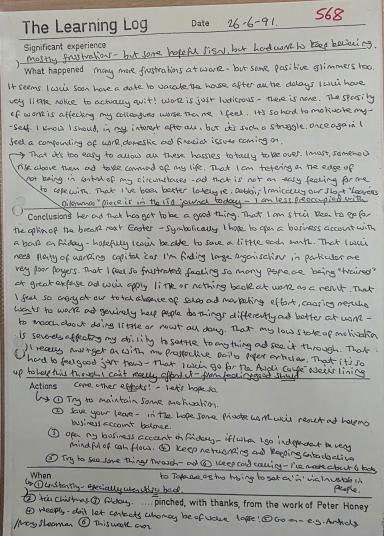 568
The Learning Log Date 26-6-91.
Significant experience
mostly frustrations - but some hopeful signs, but hard work to keep believing.
What happened many more frustrations at work - but some positive glimmers too.
It seems I will soon have a date to vacate the house after all the delays I will have
very little notice to actually quit! Work is just ludicrous - there is none. The
of work is affecting my colleagues worse than me I feel. It's so hard to motivate my-
-self. I know I should, in my interest after all, but it's such a struggle. Once again I
feel a compounding of work, domestic and financial issues coming on.
That it's too easy to allow all these hassles totally to take over. I must, somehow
rise above them and take command of my life. That I am teetering on the edge of
not being in control of my circumstances - and that is not an easy feeling for me
to cope with. That I've been better lately re. Debbie,
piece is in the journal today - I am less preoccupied with
Conclusions her and that has got to be a good thing. That I am still keen to go for
the option of the break next Easter - symbolically I hope to open a business account with
a bank on Friday - hopefully I will be able to save a little each month. That I will
need plenty of working capital as I'm finding large organisations in particular are
very poor payers. That I feel so frustrated feeling so many people are being "trained"
at great expense and will apply little or nothing back at work as a result. That
I feel so angry at our total absence of sales and marketing effort, causing me who
wants to work and genuinely help people do things differently and better at work -
to mooch about doing little or nowt all day. That my low state of motivation
is severely affecting my ability to settle to anything and see it through. That
I really must get on with my prospective articles. That it is so
hard to feel good just now - That I will go for the Audi Coupe
up to help this though I can't really afford it - from feeling good should
Actions come other efforts! - let's hope so.
① Try to maintain some motivation.
② Save your leave - in the hope some private work will result and help my
business account balance.
③ Open my business account on Friday - if/when I go independent be very
mindful of cash flow. ④ Keep networking and keeping into
⑤ Try to see some things through - and ⑥ Keep cold calling - I've more about 6
When to
people.
① Constantly - especially when it's bad
② Till Christmas ③ Friday. ....pinched, with thanks, from the work of Peter Honey
④ Steadily - don't let contacts who may be of value lapse. ⑤ Go on - e.g.
⑥ This week on